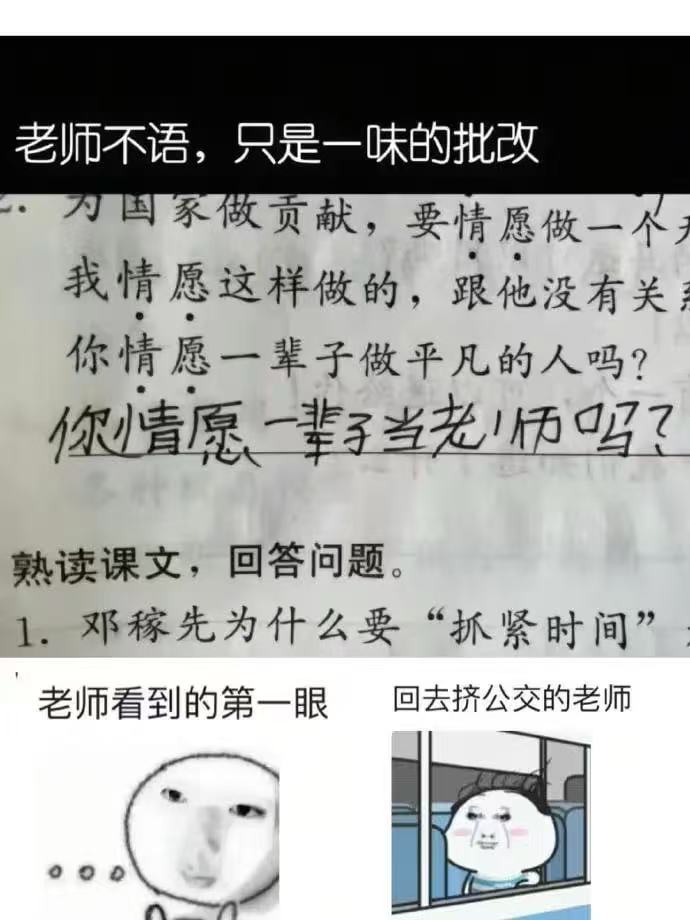 老师不语，只是一味的批改
2. 为国家做贡献，要情愿做一个
我情愿这样做的，跟他没有关系
你情愿一辈子做平凡的人吗？
你情愿一辈子当老师吗？
熟读课文，回答问题。
1. 邓稼先为什么要“抓紧时间”
老师看到的第一眼
回去挤公交的老师